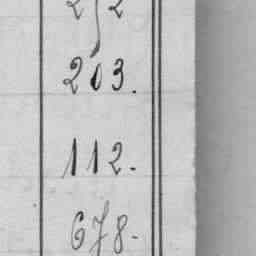 203.
112.
678.